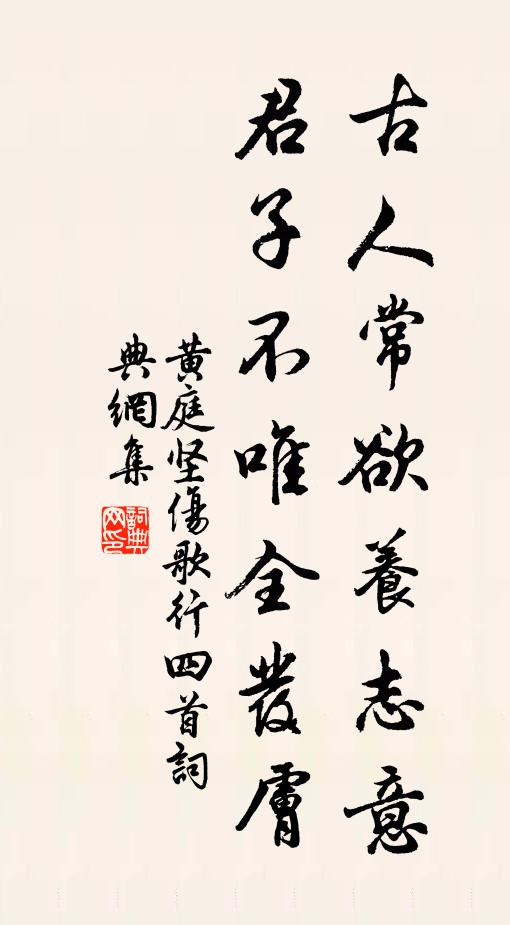 古人常欲養志意
君子不唯全發膚
黄庭坚傷歌行四首詞
典網集
詞典網印